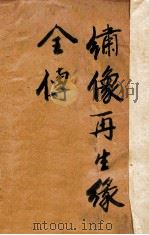 繡像再生緣
全傳
mtoou.info